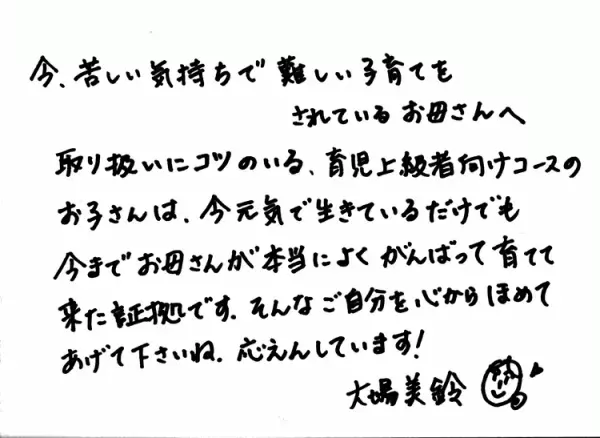 今、苦しい気持ちで難しい子育てを
されているお母さんへ
取り扱いにコツのいる、育児上級者向けコースの
お子さんは、今元気で生きているだけでも
今までお母さんが本当によくがんばって育てて
来た証拠です。そんなご自分を心からほめて
あげて下さいね。応えんしています!
大場美鈴